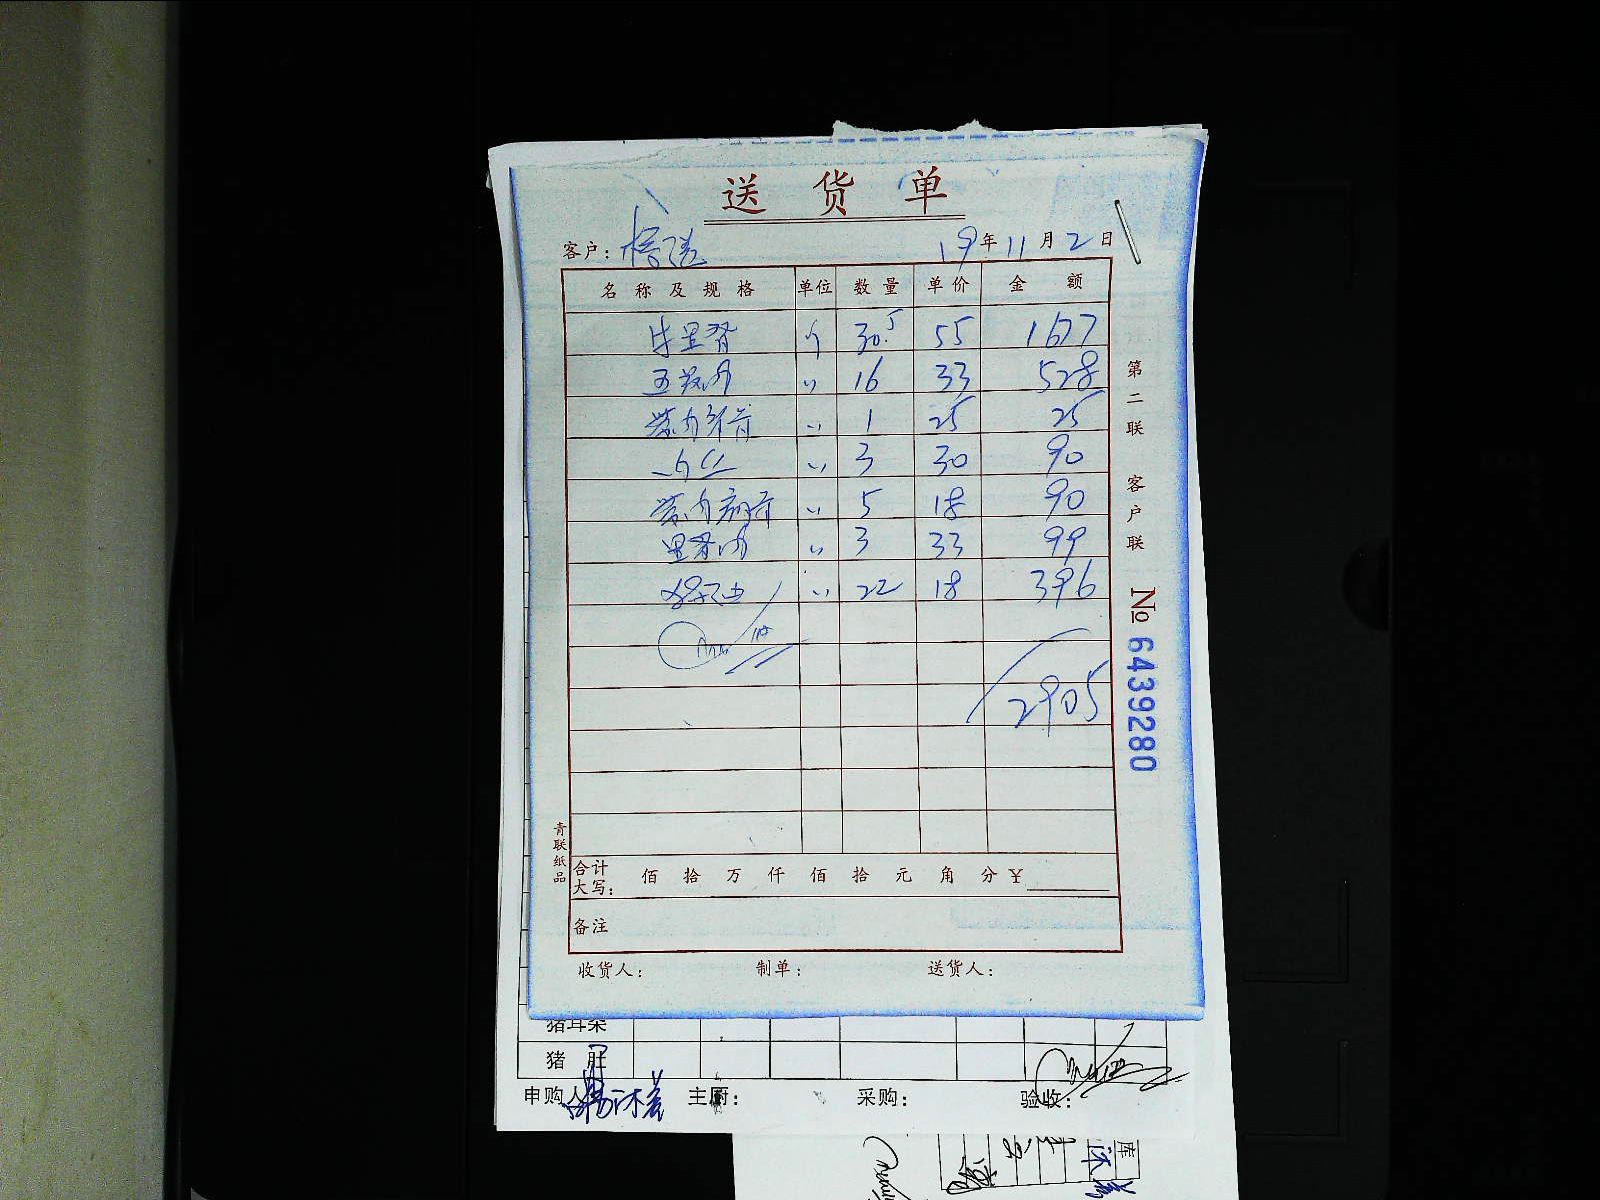 送货单
客户: 19年11月2日
名称及规格 单位 数量 单价 金额
牛里脊 斤 30.5 55 1677
五花肉 〃 16 33 528
〃 1 25 25
肉丝 〃 3 30 90
〃 5 18 90
里脊肉 〃 3 33 99
〃 22 18 396
2905
合计大写: 佰 拾 万 仟 佰 拾 元 角 分 ¥
备注
收货人: 制单: 送货人:
第二联 客户联
№ 6439280
青联纸品
猪耳朵
猪肚
申购人 主厨: 采购: 验收:
库